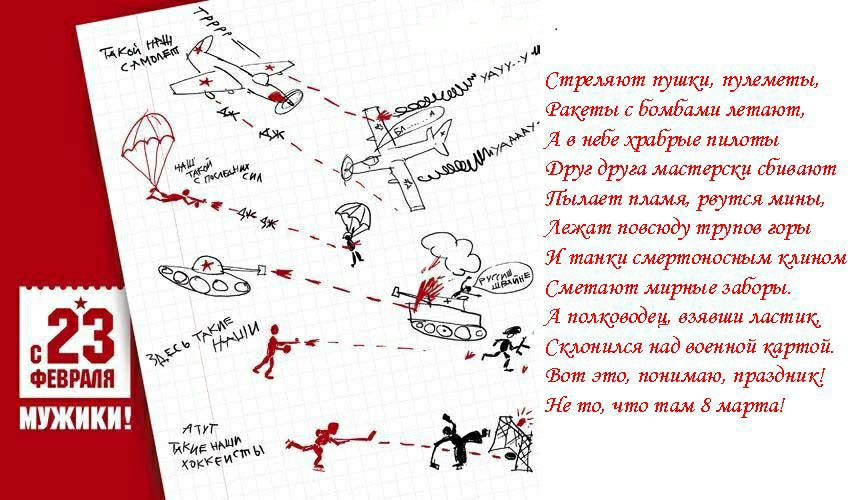 ТРРРР
ТАКОЙ НАШ
САМОЛЕТ
УАУУ..У
ДЖ
ДЖ
НАШ
ТАКОЙ
С ПОСЛЕДНИХ СИЛ
ДЖ ДЖ
РУССИШ
ШВАЙНЕ
ЗДЕСЬ ТАКИЕ
НАШИ
А ТУТ
ТАКИЕ НАШИ
ХОККЕИСТЫ
С 23
ФЕВРАЛЯ
МУЖИКИ!
Стреляют пушки, пулеметы,
Ракеты с бомбами летают,
А в небе храбрые пилоты
Друг друга мастерски сбивают
Пылает пламя, рвутся мины,
Лежат повсюду трупов горы
И танки смертоносным клином
Сметают мирные заборы.
А полководец, взявши ластик,
Склонился над военной картой.
Вот это, понимаю, праздник!
Не то, что там 8 марта!